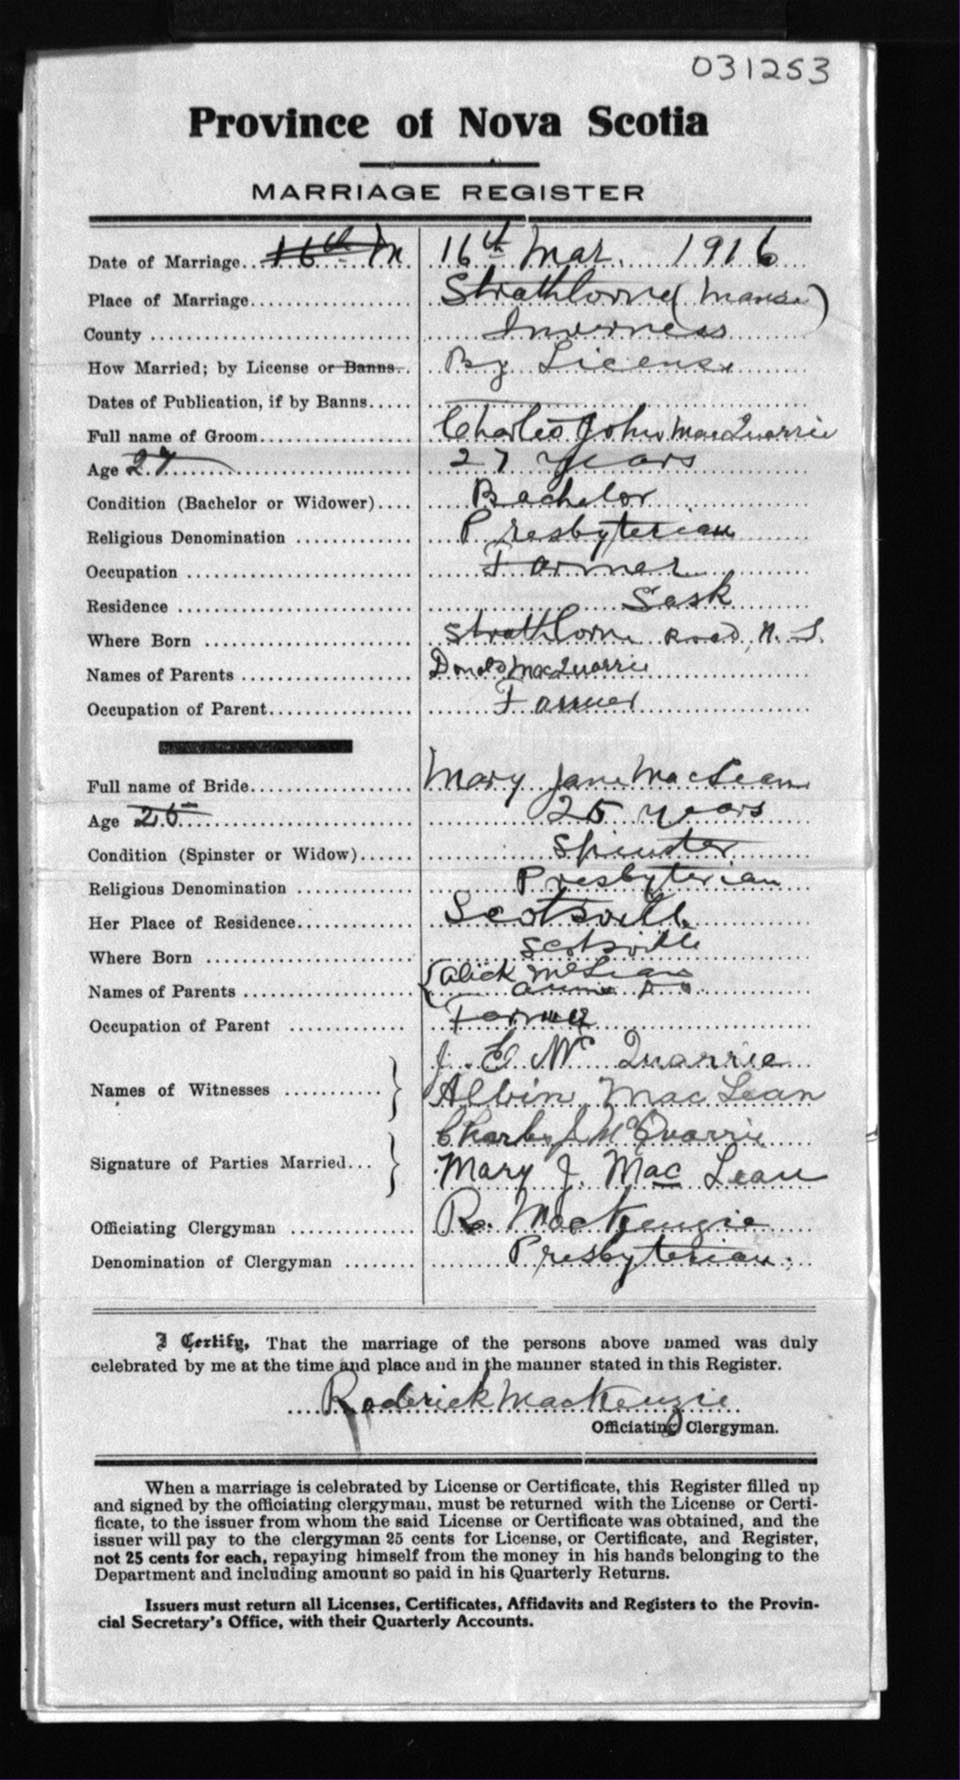 031253
Province of Nova Scotia
MARRIAGE REGISTER
Date of Marriage 16th M 16th Mar. 1916
Place of Marriage Strathlorne (Manse)
County Inverness
How Married; by License or Banns By License
Dates of Publication, if by Banns
Full name of Groom Charles John MacQuarrie
Age 27 27 years
Condition (Bachelor or Widower) Bachelor
Religious Denomination Presbyterian
Occupation Farmer
Residence Sask
Where Born Strathlorne Road, N. S.
Names of Parents Donald MacQuarrie
Occupation of Parent Farmer
Full name of Bride Mary Jane MacLean
Age 25 25 years
Condition (Spinster or Widow) Spinster
Religious Denomination Presbyterian
Her Place of Residence Scotsville
Where Born Scotsville
Names of Parents { Alick McLean
Annie Do
Occupation of Parent Farmer
Names of Witnesses } J. C. McQuarrie
Albin MacLean
Signature of Parties Married } Charles J. McQuarrie
Mary J. MacLean
Officiating Clergyman R. MacKenzie
Denomination of Clergyman Presbyterian.
I Certify, That the marriage of the persons above named was duly
celebrated by me at the time and place and in the manner stated in this Register.
Roderick MacKenzie
Officiating Clergyman.
When a marriage is celebrated by License or Certificate, this Register filled up
and signed by the officiating clergyman, must be returned with the License or Certi-
ficate, to the issuer from whom the said License or Certificate was obtained, and the
issuer will pay to the clergyman 25 cents for License, or Certificate, and Register,
not 25 cents for each, repaying himself from the money in his hands belonging to the
Department and including amount so paid in his Quarterly Returns.
Issuers must return all Licenses, Certificates, Affidavits and Registers to the Provin-
cial Secretary's Office, with their Quarterly Accounts.